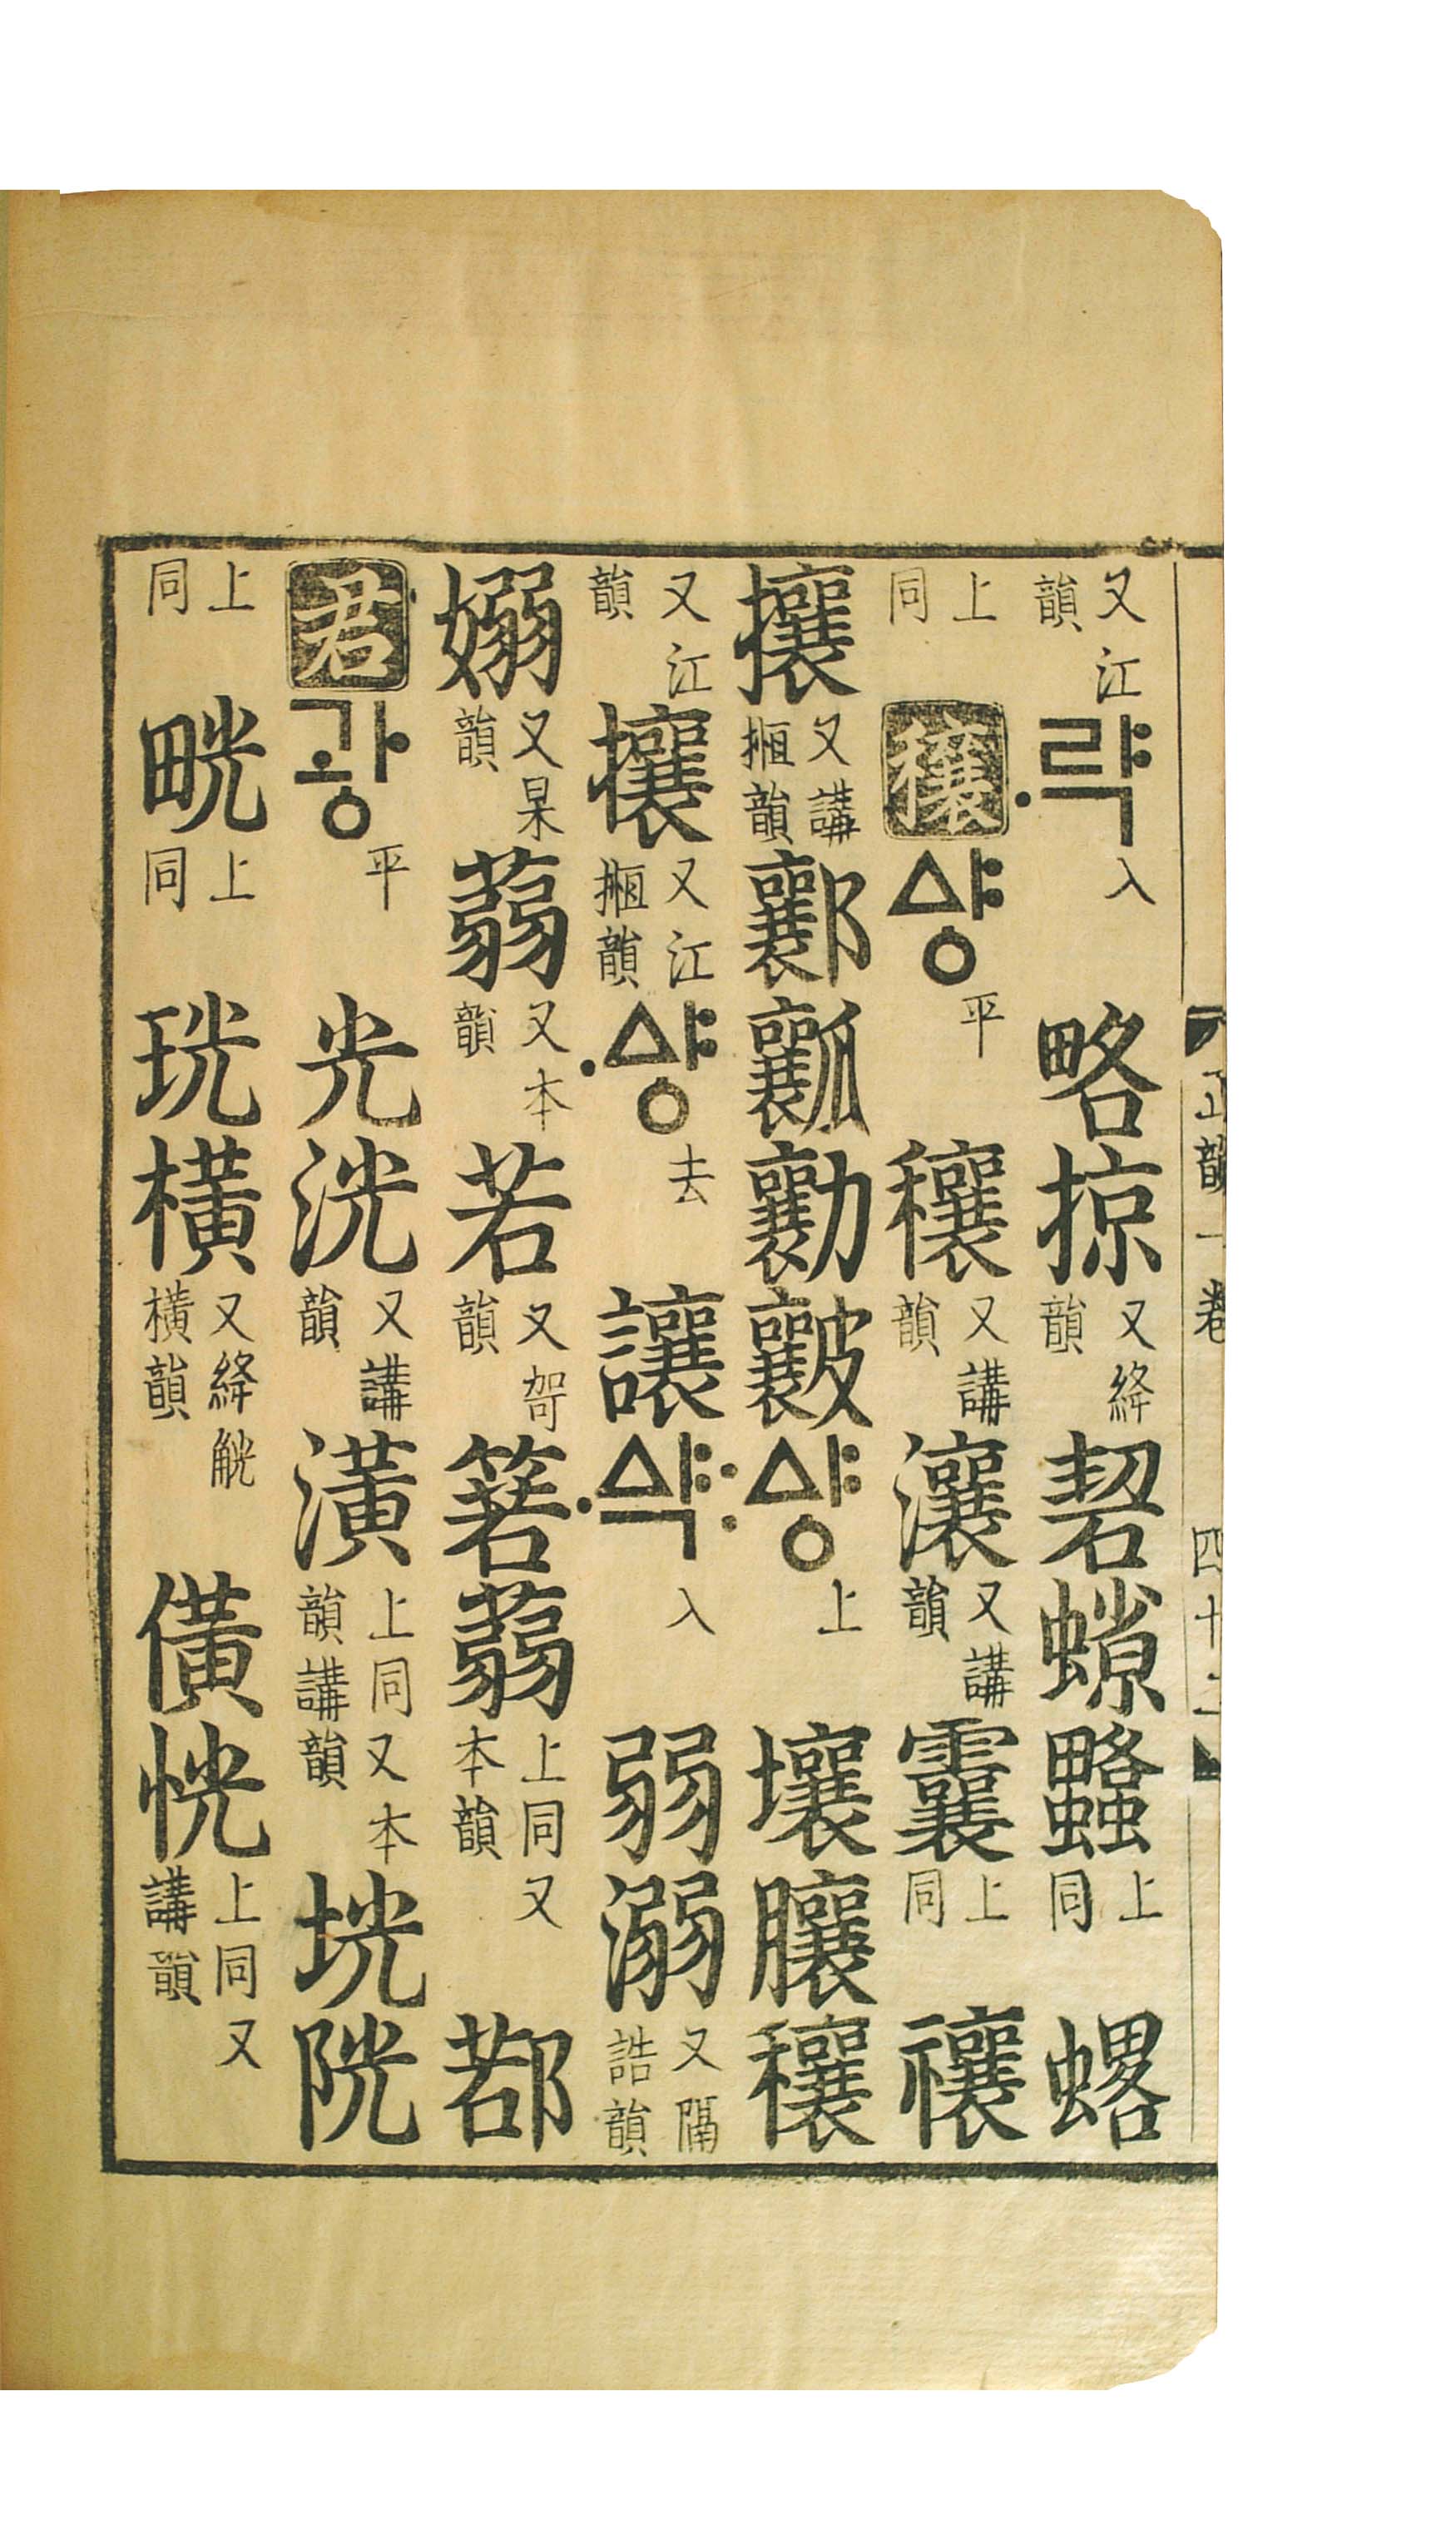 正韻一卷 四十二
又江韻 ·략 入 略 掠 又絳韻 䂮 上同
上同 穰 ᅀᅣᆼ 平 穰 又講韻 瀼 又講韻 上同 禳
攘 又講韻 瓤 勷 :ᅀᅣᆼ 上 壤 穰
又江韻 攘 又江韻 ·ᅀᅣᆼ 去 讓 ·ᅀᅣᆨ 入 弱 溺 又隔誥韻
嫋 又杲韻 蒻 又本韻 若 又哿韻 箬 蒻 上同又本韻 鄀
君 광 平 光 洸 又講韻 潢 上同又本韻講韻 垙
上同 上同 珖 橫 又絳觥橫韻 僙 恍 上同又講韻